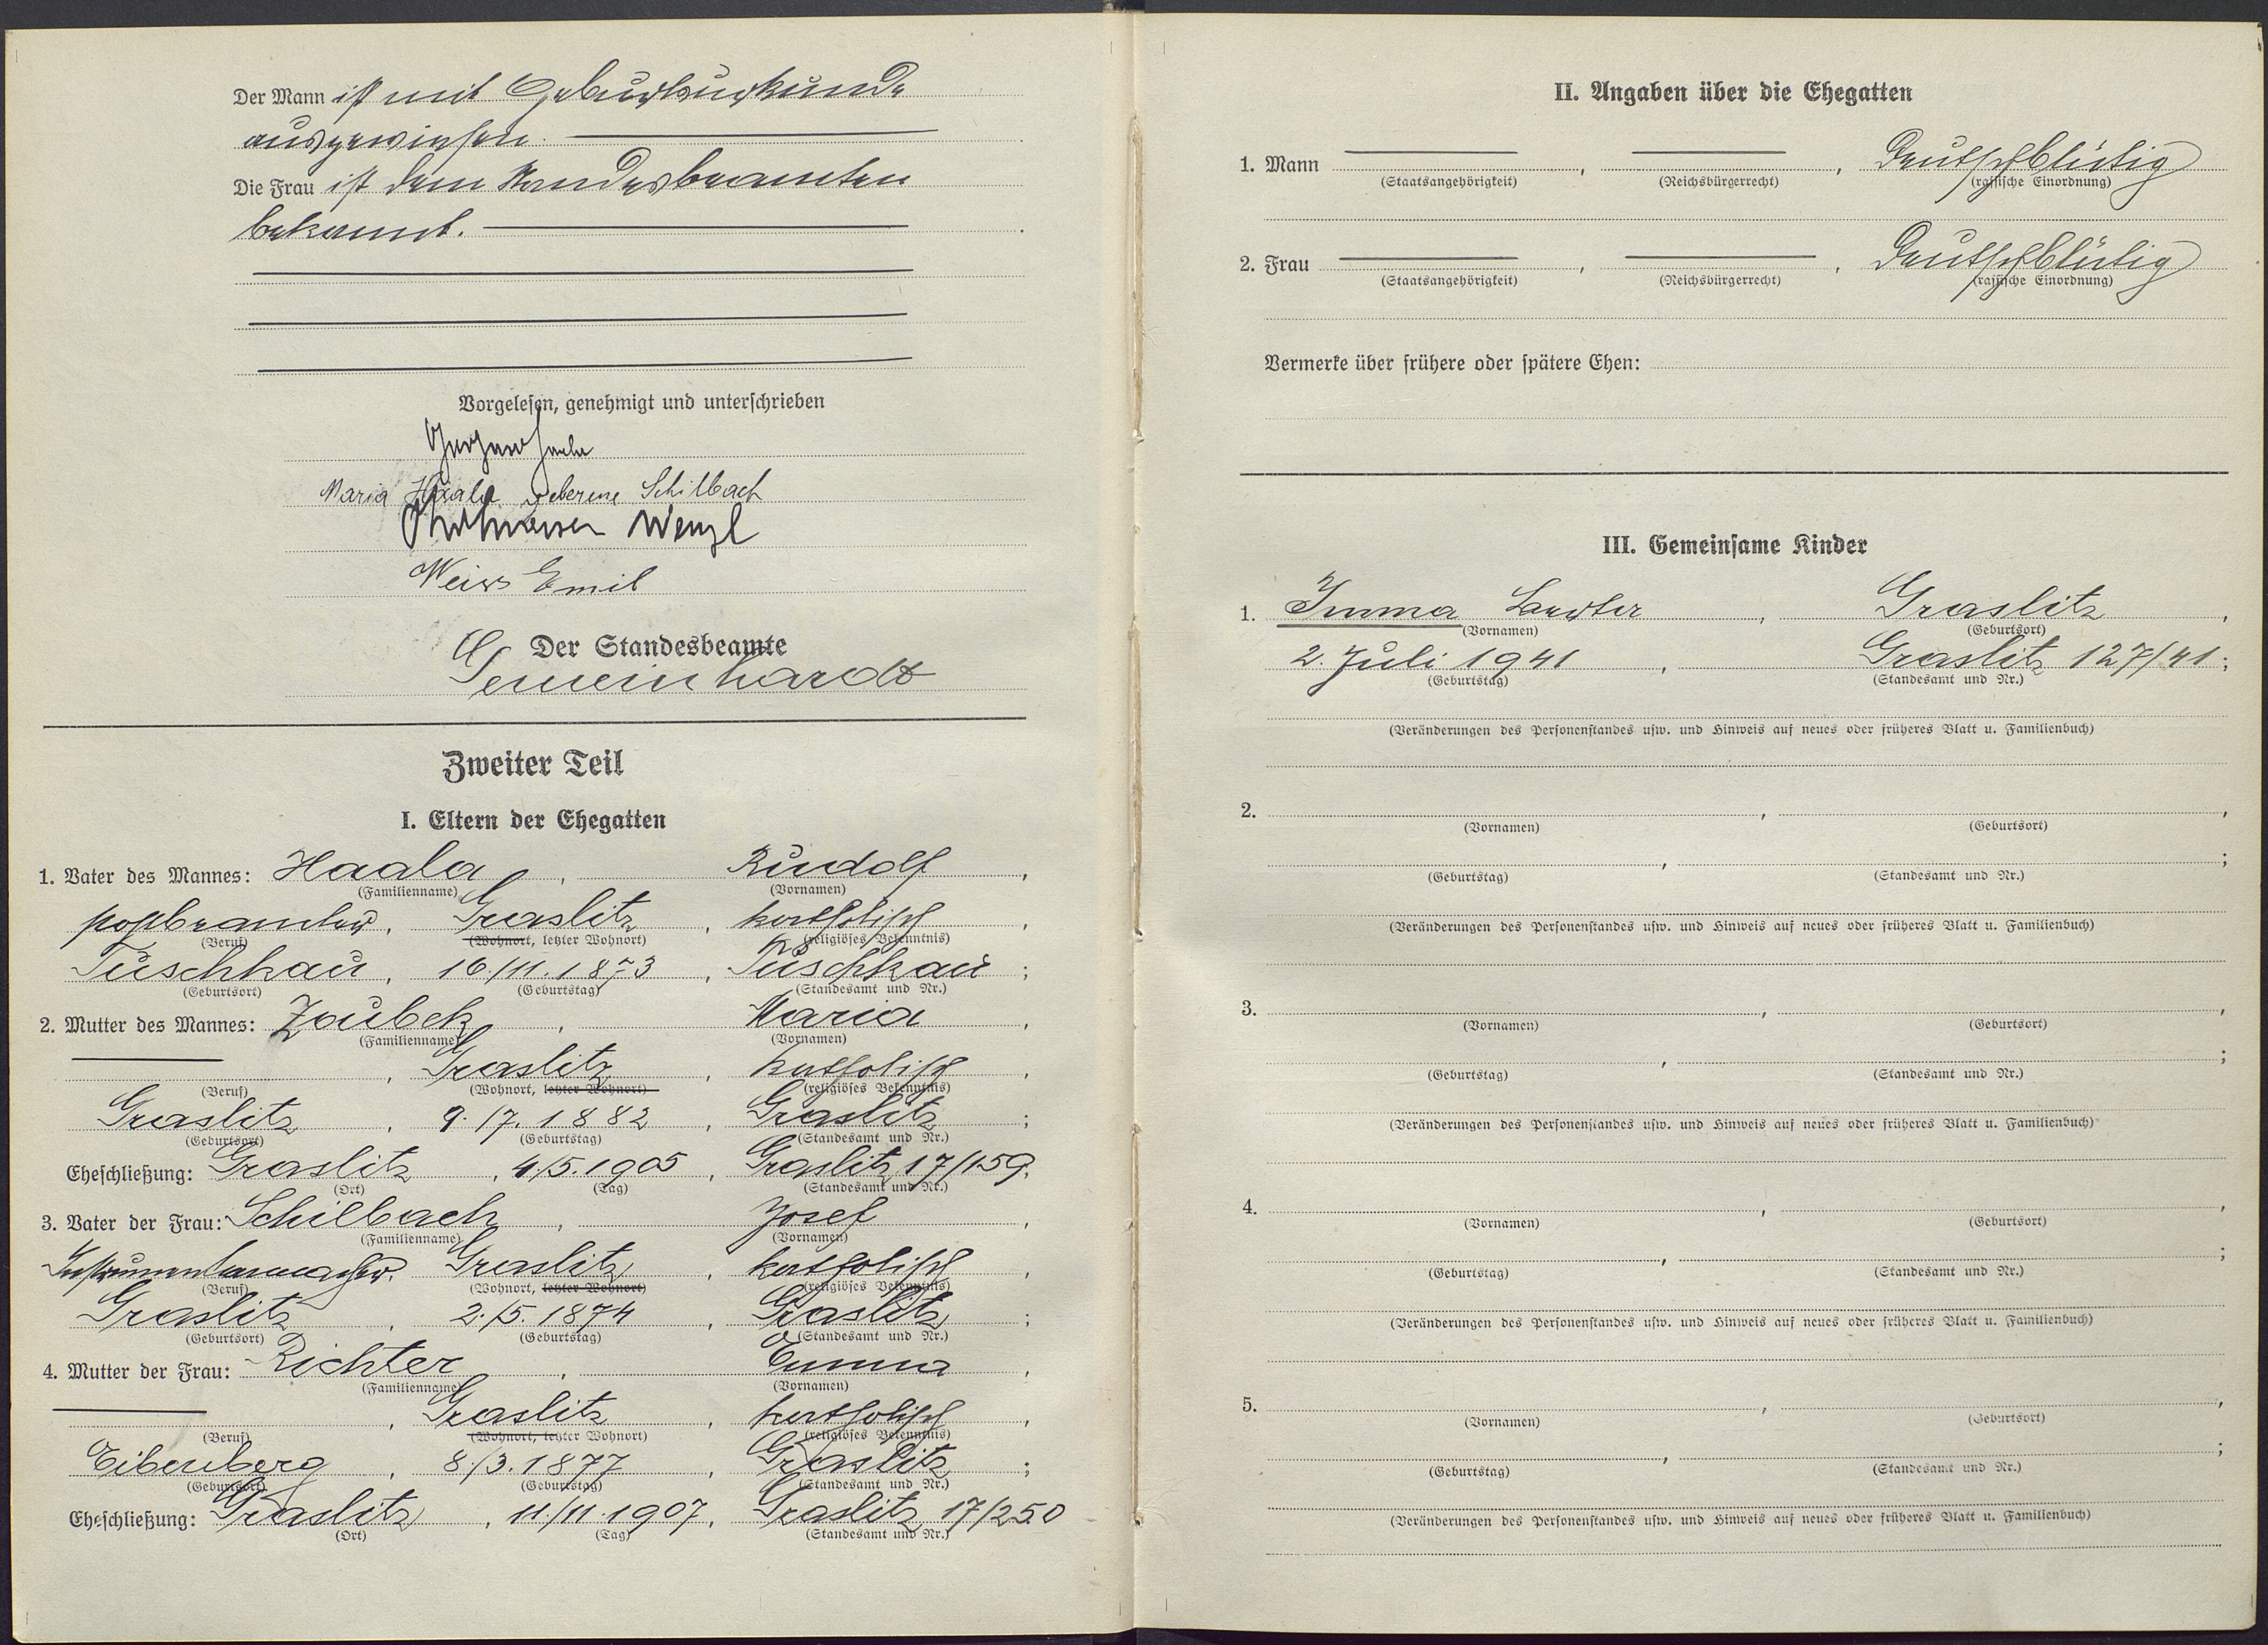 Der Mann ist mit Geburtsurkunde
ausgewiesen.
Die Frau ist dem Standesbeamten
bekannt.
Vorgelesen, genehmigt und unterschrieben
Maria Haala geborene Schilbach
Wenzl
Weiss Emil
Der Standesbeamte
Gemeinhardt
Zweiter Teil
I. Eltern der Ehegatten
1. Vater des Mannes: Haala, Rudolf,
(Familienname) (Vornamen)
Postbeamter, Graslitz, katholisch,
(Beruf) (Wohnort, letzter Wohnort) (religiöses Bekenntnis)
Tuschkau, 16./11.1873, Tuschkau;
(Geburtsort) (Geburtstag) (Standesamt und Nr.)
2. Mutter des Mannes: Zoubek, Maria,
(Familienname) (Vornamen)
, Graslitz, katholisch,
(Beruf) (Wohnort, letzter Wohnort) (religiöses Bekenntnis)
Graslitz, 9./7.1882, Graslitz;
(Geburtsort) (Geburtstag) (Standesamt und Nr.)
Eheschließung: Graslitz, 4./5.1905, Graslitz 17/159.
(Ort) (Tag) (Standesamt und Nr.)
3. Vater der Frau: Schilbach, Josef,
(Familienname) (Vornamen)
Instrumentenmacher, Graslitz, katholisch,
(Beruf) (Wohnort, letzter Wohnort) (religiöses Bekenntnis)
Graslitz, 2./5.1874, Graslitz;
(Geburtsort) (Geburtstag) (Standesamt und Nr.)
4. Mutter der Frau: Richter, Emma,
(Familienname) (Vornamen)
, Graslitz, katholisch,
(Beruf) (Wohnort, letzter Wohnort) (religiöses Bekenntnis)
Eibenberg, 8./3.1877, Graslitz;
(Geburtsort) (Geburtstag) (Standesamt und Nr.)
Eheschließung: Graslitz, 11./11.1907, Graslitz 17/250
(Ort) (Tag) (Standesamt und Nr.)
II. Angaben über die Ehegatten
1. Mann , , Deutschblütig
(Staatsangehörigkeit) (Reichsbürgerrecht) (rassische Einordnung)
2. Frau , , Deutschblütig
(Staatsangehörigkeit) (Reichsbürgerrecht) (rassische Einordnung)
Vermerke über frühere oder spätere Ehen:
III. Gemeinsame Kinder
1. , Graslitz,
(Vornamen) (Geburtsort)
2. Juli 1941, Graslitz 127/41;
(Geburtstag) (Standesamt und Nr.)
(Veränderungen des Personenstandes usw. und Hinweis auf neues oder früheres Blatt u. Familienbuch)
2. , ,
(Vornamen) (Geburtsort)
, ;
(Geburtstag) (Standesamt und Nr.)
(Veränderungen des Personenstandes usw. und Hinweis auf neues oder früheres Blatt u. Familienbuch)
3. , ,
(Vornamen) (Geburtsort)
, ;
(Geburtstag) (Standesamt und Nr.)
(Veränderungen des Personenstandes usw. und Hinweis auf neues oder früheres Blatt u. Familienbuch)
4. , ,
(Vornamen) (Geburtsort)
, ;
(Geburtstag) (Standesamt und Nr.)
(Veränderungen des Personenstandes usw. und Hinweis auf neues oder früheres Blatt u. Familienbuch)
5. , ,
(Vornamen) (Geburtsort)
, ;
(Geburtstag) (Standesamt und Nr.)
(Veränderungen des Personenstandes usw. und Hinweis auf neues oder früheres Blatt u. Familienbuch)